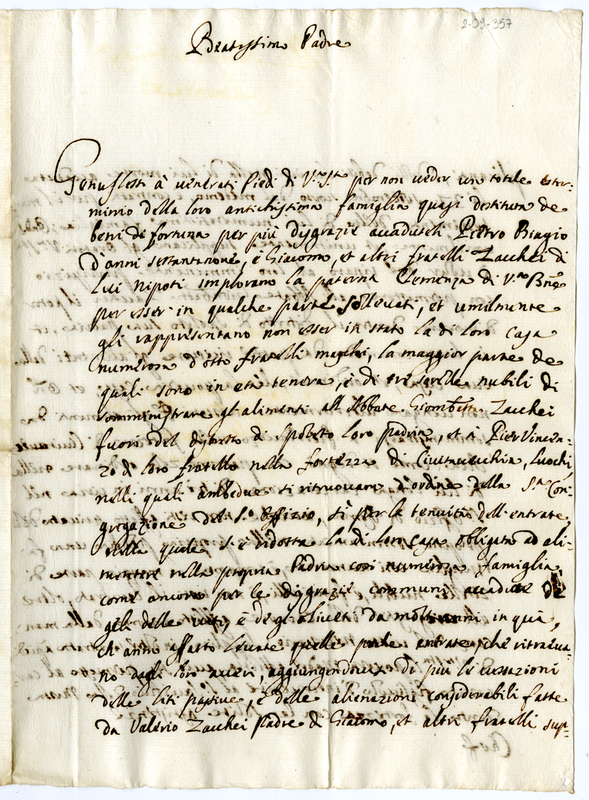 2-09-357
Beatissimo Padre
Genuflessi à venerati Piedi di V.ra S.tà per non veder un totale ester-
minio della loro antichissima famiglia quasi destituta de
beni di fortuna per più disgrazie accaduteli Pietro Biagio
d'anni settantanove, e Giacomo, et altri fratelli Zacchei di
lui Nipoti implorano la paterna Clemenza di V.ra Bne
per esser in qualche parte sollevati, et umilmente
gli rappresentano non esser in stato la di loro Casa
numerosa d'otto fratelli maschi, la maggior parte de
quali sono in età tenera, è di tre sorelle nubili di
somministrare gl'alimenti all'Abbate Giombatt. Zacchei
fuori del distretto di Spoleto loro Patria, et à Pier Vincen-
zo di loro fratello nella fortezza di Civitavecchia, Luochi
nelli quali ambedue si ritrovano d'ordine della S.ra Con-
gregazione del S.o Offizio, sì per la tenuità dell'entrate,
nella quale s'è ridotta la di loro casa obligata ad ali-
mentare nella propria Padria così numerosa famiglia,
come ancora per le disgrazie communi accadute di
geli delle viti, è degl'oliveti da molti anni in quà,
ch'anno affatto levate quelle poche entrate, che ritraeva-
no dagli loro averi, aggiungendovisi di più le vessazioni
delle liti passive, è delle alienazioni considerabili fatte
da Valerio Zacchei Padre di Giacomo, et altri fratelli sup-